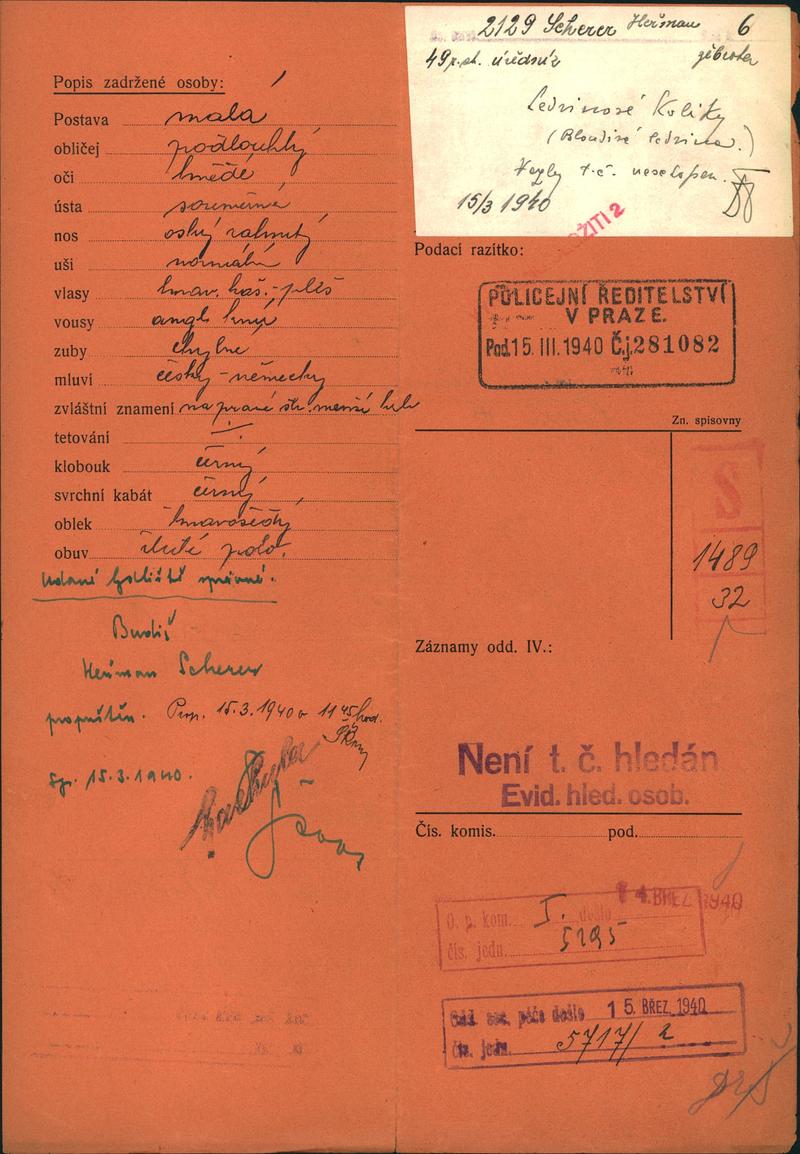 Popis zadržené osoby:
Postava malá
obličej podlouhlý
oči hnědé
ústa souměrná
nos ostrý
uši normální
vlasy tmav. kaš.-pleš
vousy angl. knír
zuby chybné
mluví česky-německy
zvláštní znamení na pravé str. menší
tetování ·/·
klobouk černý
svrchní kabát černý
oblek tmavošedý
obuv žluté polo.
Udané bydliště správné.
Budiž
Heřman Scherer
propuštěn. Prop. 15.3.1940 o 11 45 hod.
15.3.1940.
2129 Scherer Heřman 6
49 úředník
Ledvinové Koliky
(Bloudivá ledvina.)
t.č. neschopen.
15/3 1940
Podací razítko:
POLICEJNÍ ŘEDITELSTVÍ
V PRAZE.
Pod. 15. III. 1940 Č.j. 281082
Zn. spisovny
S
1489
32
Záznamy odd. IV.:
Není t. č. hledán
Evid. hled. osob.
Čís. komis. pod.
O. p. kom. I. došlo 14. BŘEZ. 1940
čís. jedn. 5195
péče došlo 15. BŘEZ. 1940
čís. jedn. 5717/2